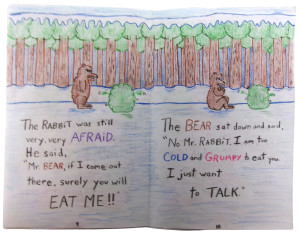 The RABBiT was still
very, very AFRAiD.
He said,
"Mr. BEAR, if I come out
there, surely you will
EAT ME!!"
9
The BEAR sat down and said,
"No Mr. RABBiT, I am too
COLD and GRUMPY to eat you.
I just want
to TALK."
10